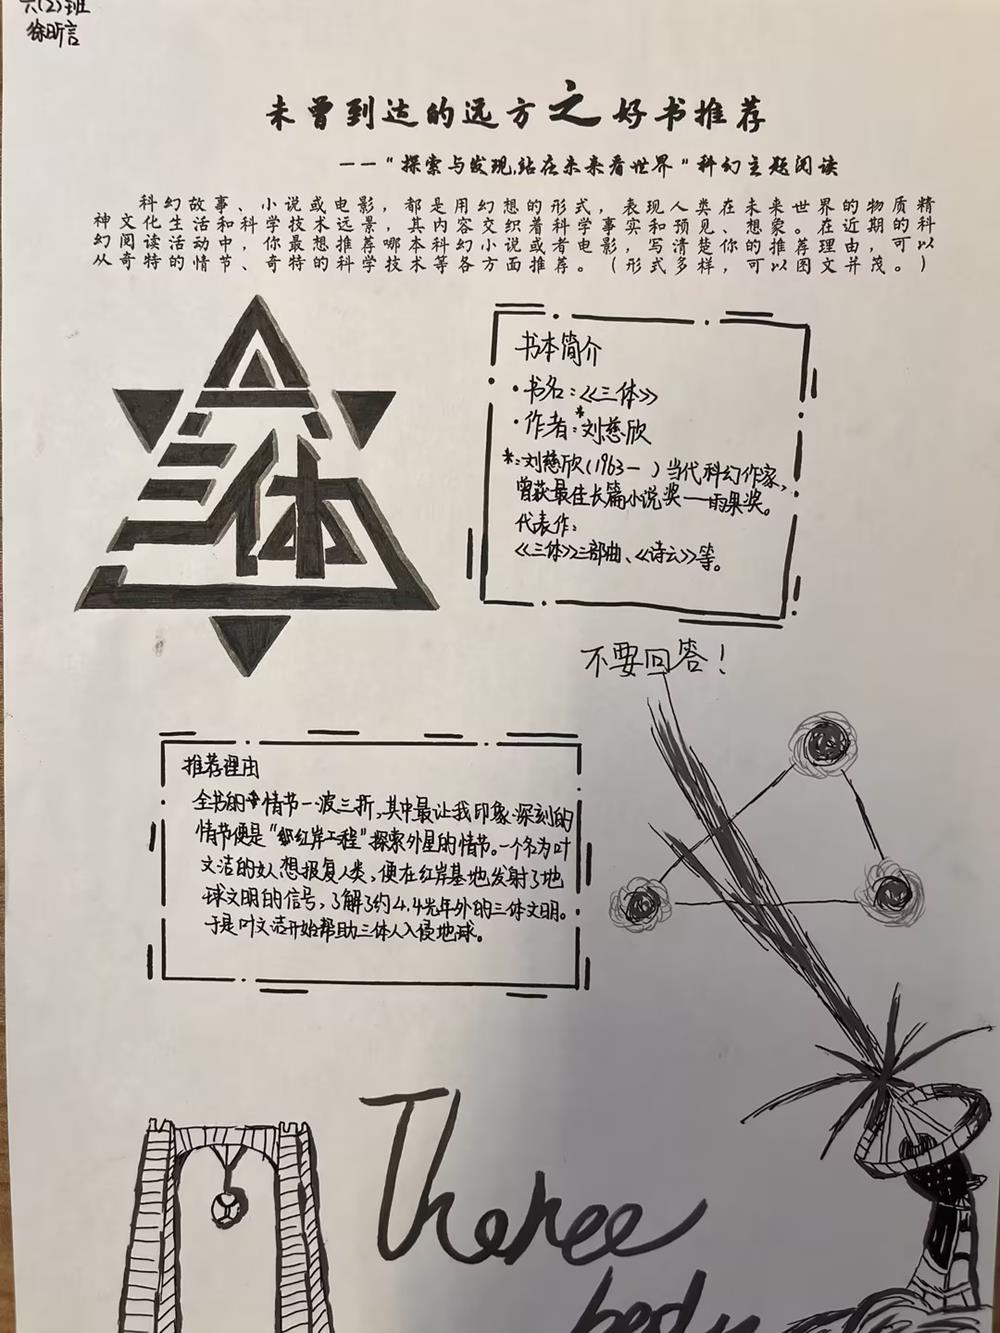 六(2)班
徐昕言
未曾到达的远方之好书推荐
——“探索与发现,站在未来看世界”科幻主题阅读
科幻故事、小说或电影，都是用幻想的形式，表现人类在未来世界的物质精
神文化生活和科学技术远景，其内容交织着科学事实和预见、想象。在近期的科
幻阅读活动中，你最想推荐哪本科幻小说或者电影，写清楚你的推荐理由，可以
从奇特的情节、奇特的科学技术等各方面推荐。（形式多样，可以图文并茂。）
三体
书本简介
·书名：《三体》
·作者：*刘慈欣
*：刘慈欣(1963— )当代科幻作家，
曾获最佳长篇小说奖——雨果奖。
代表作：
《三体》三部曲、《诗云》等。
不要回答！
推荐理由
全书的情节一波三折，其中最让我印象深刻的
情节便是“红岸工程”探索外星的情节。一个名为叶
文洁的女人想报复人类，便在红岸基地发射了地
球文明的信号，了解了约4.4光年外的三体文明。
于是叶文洁开始帮助三体人入侵地球。
The
body